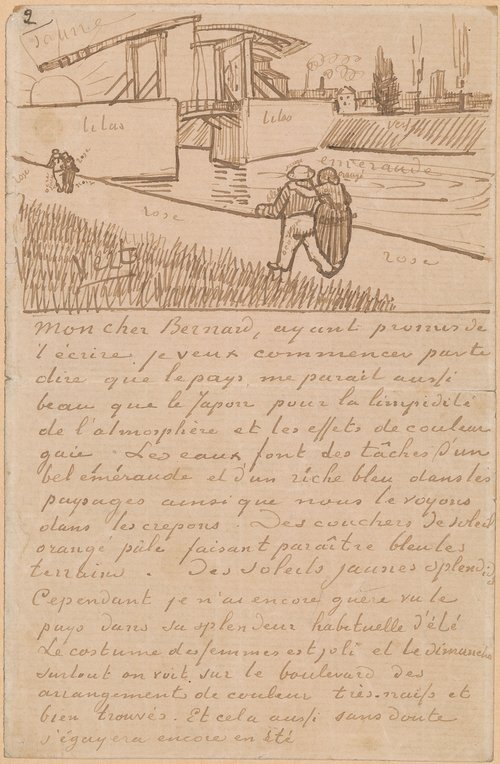 2
jaune
lilas
lilas
vert
emeraude
rose
rose
orangé
rose
rose
VERT
Mon cher Bernard, ayant promis de
t'écrire je veux commencer par te
dire que le pays me parait aussi
beau que le Japon pour la limpidité
de l'atmosphère et les effets de couleur
gaie. Les eaux font des tâches d'un
bel eméraude et d'un riche bleu dans les
paysages ainsi que nous le voyons
dans les crepons. Des couchers de soleil
orangé pâle faisant paraître bleu les
terrains. Des soleils jaunes splendides
Cependant je n'ai encore guère vu le
pays dans sa splendeur habituelle d'été
Le costume des femmes est joli et le dimanche
surtout on voit sur le boulevard des
arrangements de couleur très naifs et
bien trouvés. Et cela aussi sans doute
s'égayera encore en été